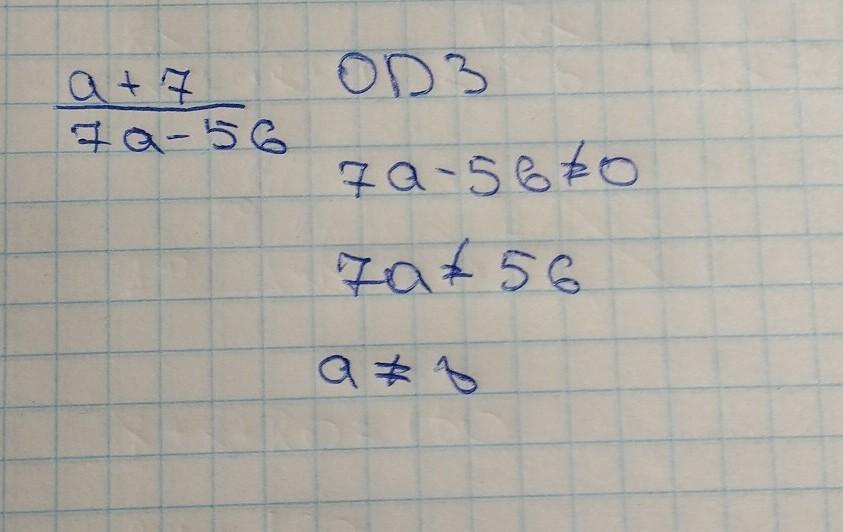 a + 7
7a - 56
ОДЗ
7a - 56 ≠ 0
7a ≠ 56
a ≠ 8